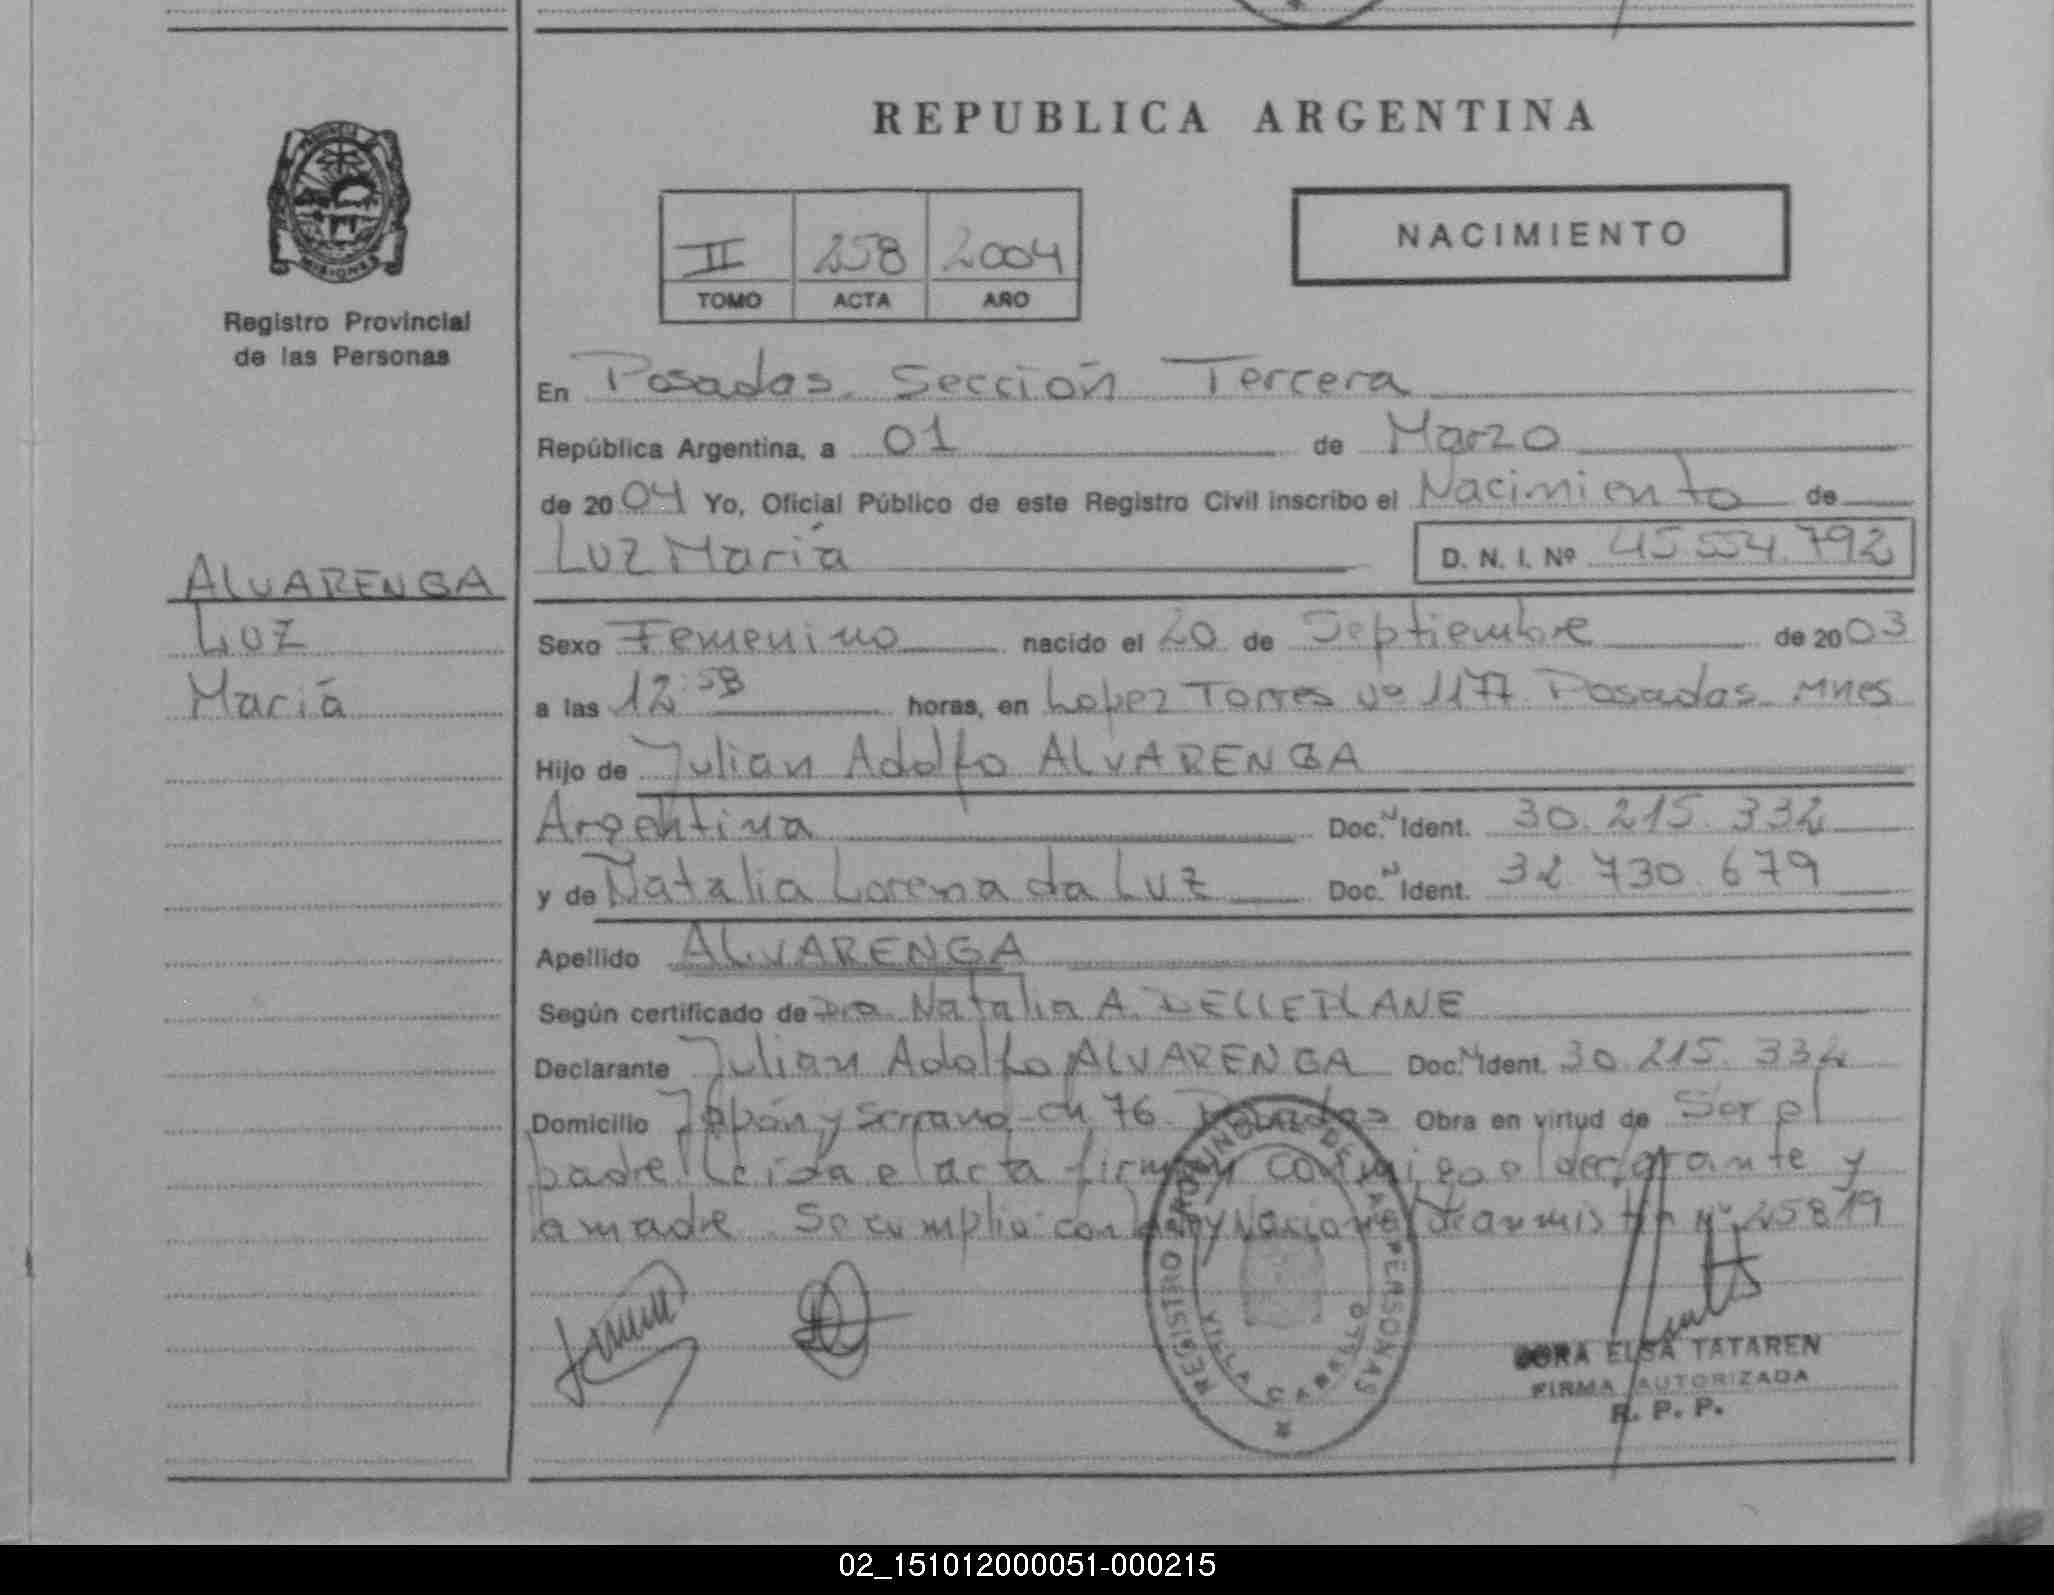 REPUBLICA ARGENTINA
MISIONES
Registro Provincial
de las Personas
II 258 2004
TOMO ACTA AÑO
NACIMIENTO
En Posadas. Sección Tercera
República Argentina, a 01 de Marzo
de 2004 Yo, Oficial Público de este Registro Civil inscribo el Nacimiento de
Luz María D. N. I. Nº 45.554.792
ALVARENGA
Luz
María
Sexo Femenino nacido el 20 de Septiembre de 2003
a las 12:58 horas, en Lopez Torres Nº 1177 Posadas Mnes
Hijo de Julian Adolfo ALVARENGA
Argentina Doc. N Ident. 30.215.332
y de Natalia Lorena da Luz Doc. N Ident. 32.730.679
Apellido ALVARENGA
Según certificado de Dra. Natalia A. DELLEPLANE
Declarante Julian Adolfo ALVARENGA Doc. N Ident. 30.215.332
Domicilio Japón y Serrano ch 76 Posadas Obra en virtud de Ser el
padre Leida el acta firman conmigo el declarante y
la madre. Se cumplio con Ley Nacional de amnistia Nº 25819
REGISTRO PROVINCIAL DE LAS PERSONAS
VILLA CABELLO
ELSA TATAREN
FIRMA AUTORIZADA
R. P. P.
02_151012000051-000215